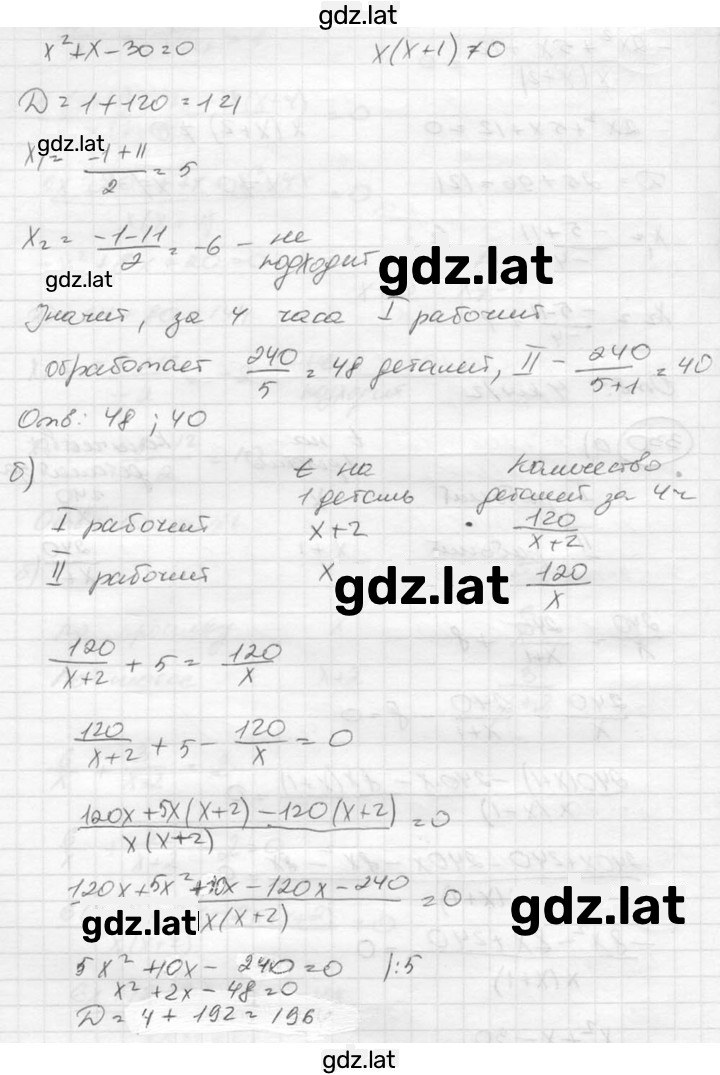 gdz.lat
x²+x-30=0 x(x+1)≠0
D=1+120=121
gdz.lat
x₁= (-1+11)/2 = 5
x₂= (-1-11)/2 = -6 - не подходит
gdz.lat
gdz.lat
Значит, за 4 часа I рабочий
обработает 240/5 = 48 деталей, II - 240/(5+1) = 40
Отв: 48 ; 40
б) t на Количество
1 деталь деталей за 4ч
I рабочий x+2 120/(x+2)
II рабочий x 120/x
gdz.lat
120/(x+2) + 5 = 120/x
120/(x+2) + 5 - 120/x = 0
(120x+5x(x+2)-120(x+2))/(x(x+2)) = 0
(120x+5x²+10x-120x-240)/(x(x+2)) = 0
gdz.lat
gdz.lat
5x²+10x-240=0 |:5
x²+2x-48=0
D=4+192=196
gdz.lat